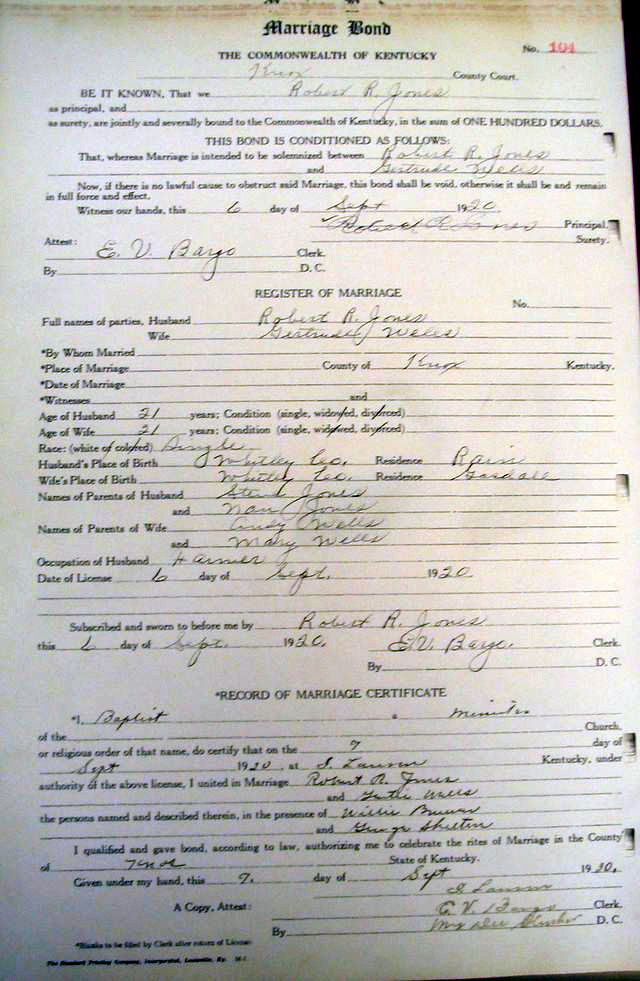 Marriage Bond
No. 104
THE COMMONWEALTH OF KENTUCKY
Knox County Court.
BE IT KNOWN, That we Robert R. Jones
as principal, and
as surety, are jointly and severally bound to the Commonwealth of Kentucky, in the sum of ONE HUNDRED DOLLARS.
THIS BOND IS CONDITIONED AS FOLLOWS:
That, whereas Marriage is intended to be solemnized between Robert R. Jones
and Gertrude Wells
Now, if there is no lawful cause to obstruct said Marriage, this bond shall be void, otherwise it shall be and remain
in full force and effect.
Witness our hands, this 6 day of Sept 1920
Robert R Jones Principal.
Surety.
Attest: E. V. Bargo Clerk.
By D. C.
REGISTER OF MARRIAGE
No.
Full names of parties, Husband Robert R. Jones
Wife Gertrude Wells
*By Whom Married
*Place of Marriage County of Knox Kentucky.
*Date of Marriage
*Witnesses and
Age of Husband 21 years; Condition (single, widowed, divorced)
Age of Wife 21 years; Condition (single, widowed, divorced)
Race: (white or colored) Single
Husband's Place of Birth Whitley Co. Residence Rain
Wife's Place of Birth Whitley Co. Residence
Names of Parents of Husband Steve Jones
and Nan Jones
Names of Parents of Wife Andy Wells
and Mary Wells
Occupation of Husband Farmer
Date of License 6 day of Sept. 1920
Subscribed and sworn to before me by Robert R. Jones
this 6 day of Sept. 1920. E.V. Bargo. Clerk.
By D. C.
*RECORD OF MARRIAGE CERTIFICATE
*I, Baptist a Minister
of the Church,
or religious order of that name, do certify that on the 7 day of
Sept 1920 at Kentucky, under
authority of the above license, I united in Marriage Robert R. Jones
and Wells
the persons named and described therein, in the presence of Willie
and George
I qualified and gave bond, according to law, authorizing me to celebrate the rites of Marriage in the County
of Knox State of Kentucky.
Given under my hand, this 7. day of Sept 1920.
A Copy, Attest: E. V. Bargo Clerk.
By D. C.
*Blanks to be filled by Clerk after return of License
The Standard Printing Company, Incorporated, Louisville, Ky.